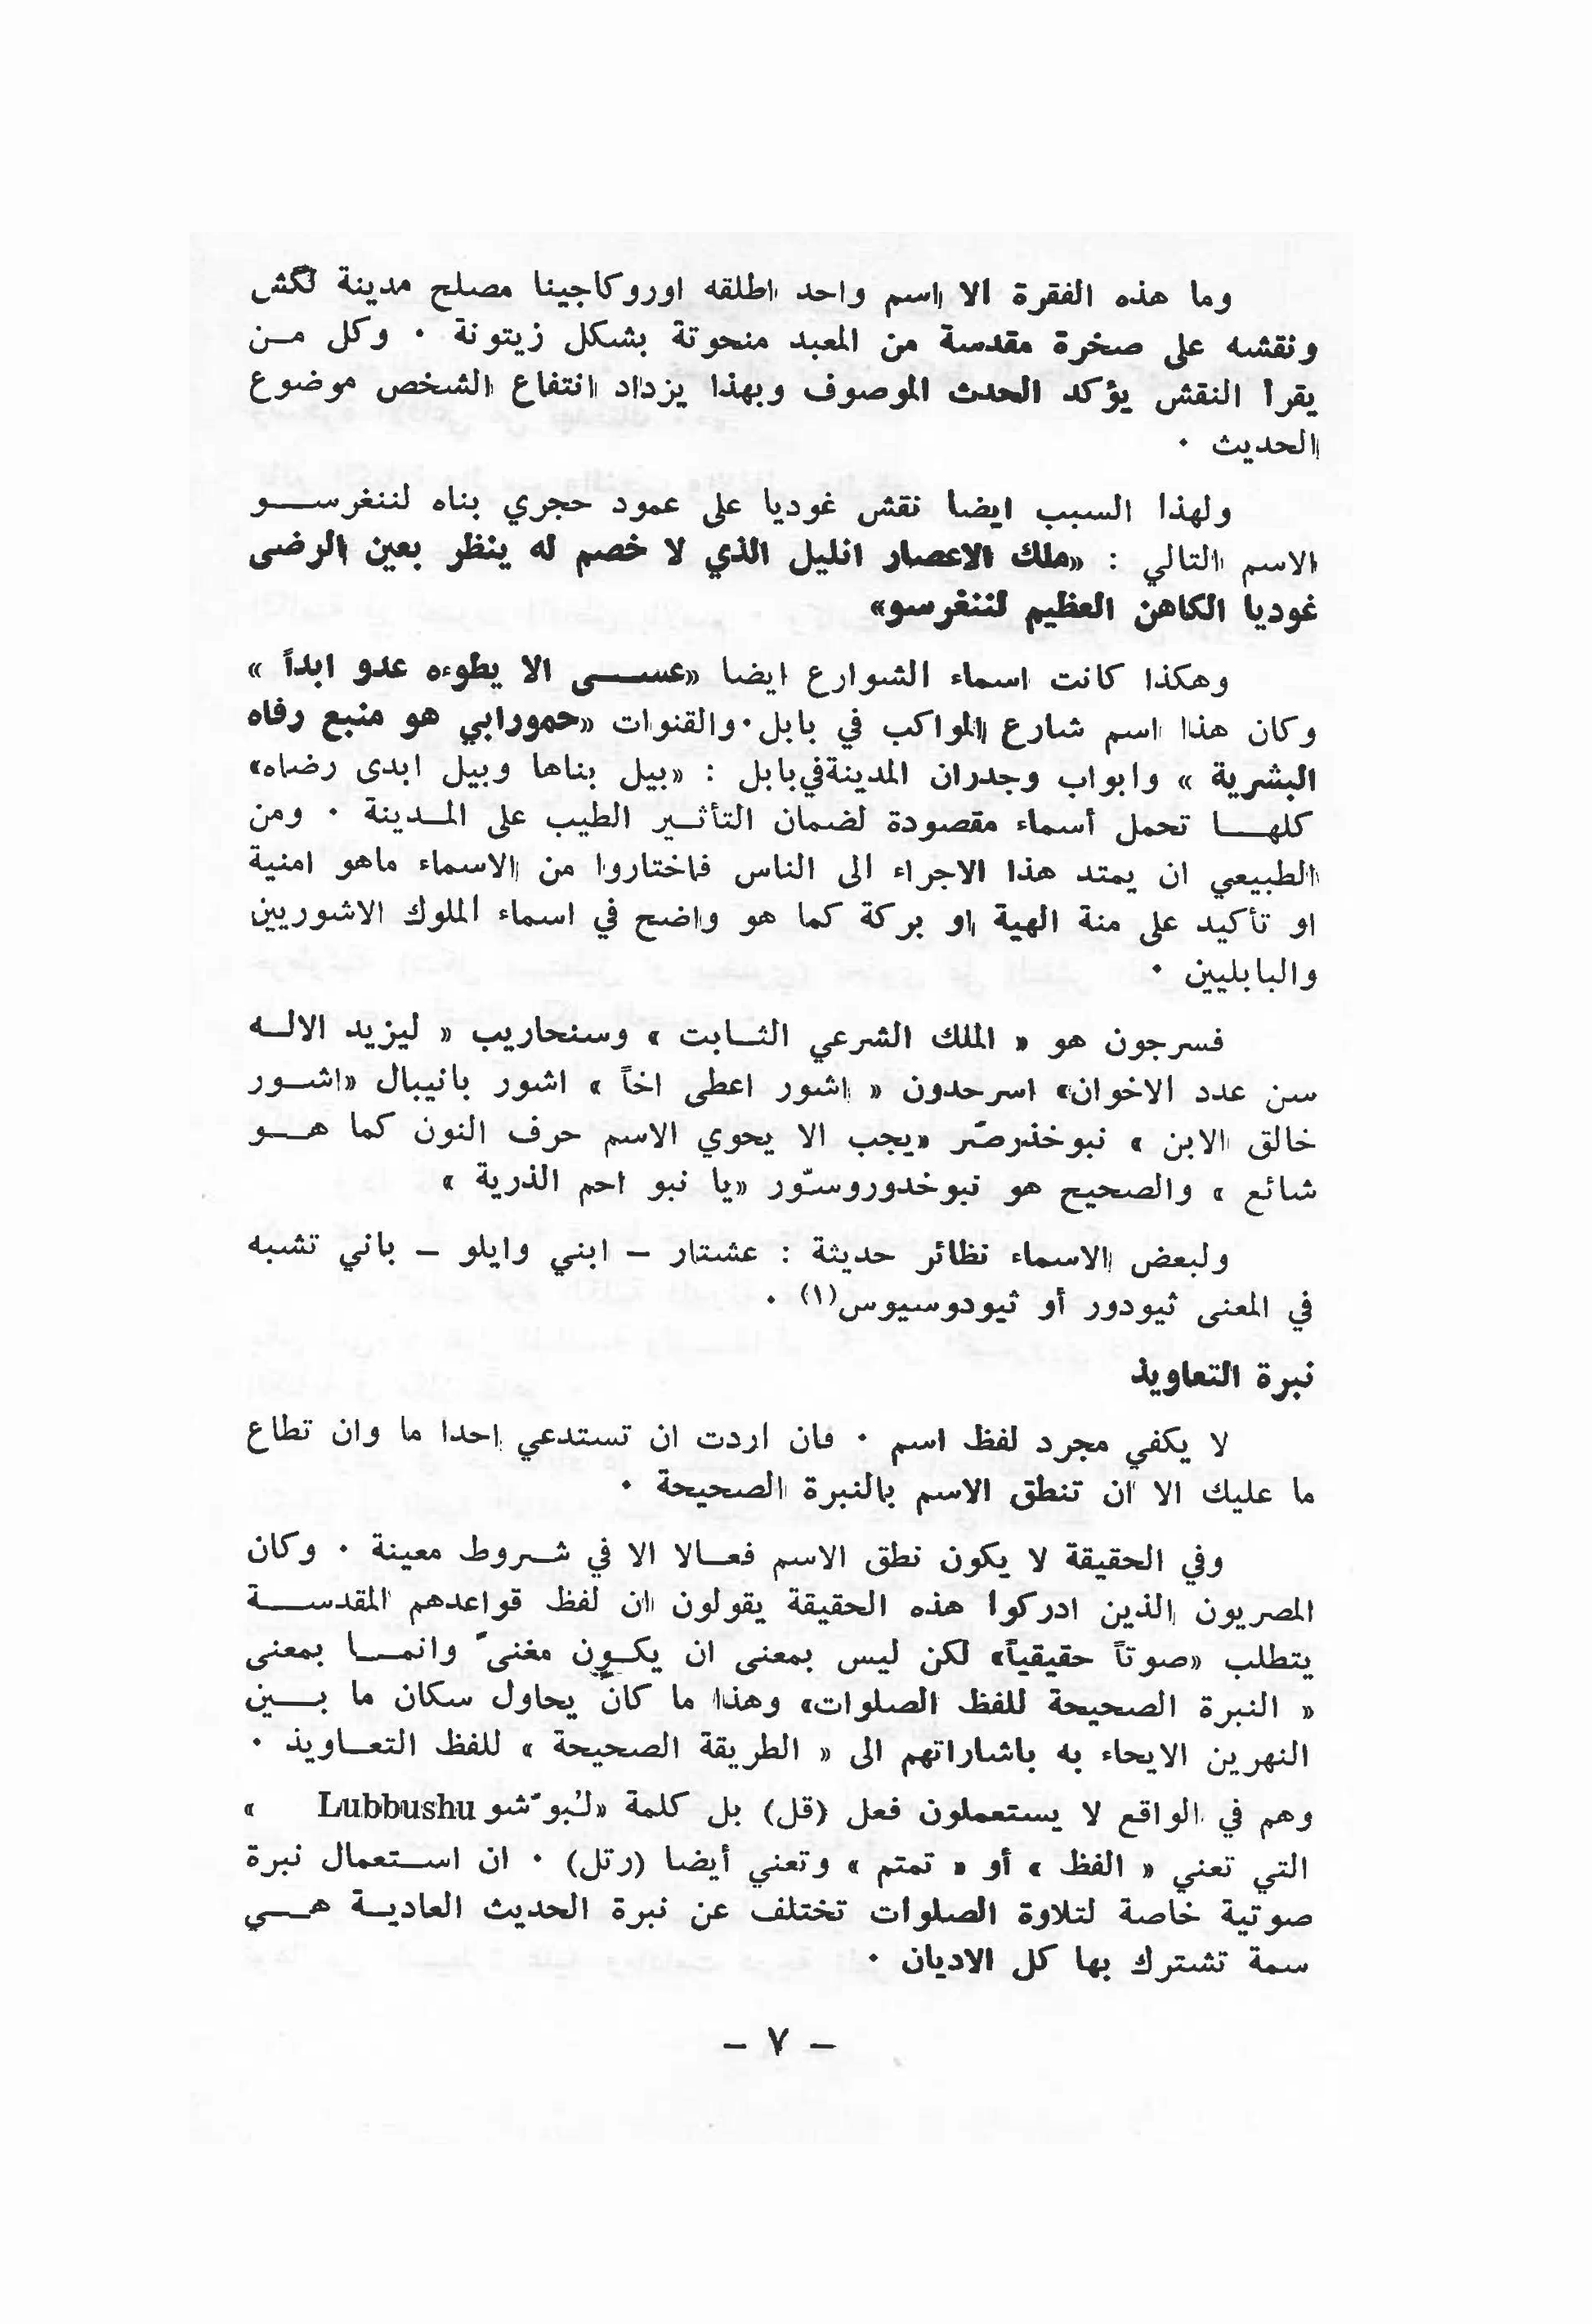 وما هذه الفقرة الا اسم واحد اطلقه اوروكاجينا مصلح مدينة لكش
ونقشه على صخرة مقدسة من المعبد منحوتة بشكل زيتونة ٠ وكل مـن
يقرأ النقش يؤكد الحدث الموصوف وبهذا يزداد انتفاع الشخص موضوع
الحديث ٠
ولهذا السبب ايضا نقش غوديا على عمود حجري بناه لننغرسـو
الاسم التالي : «ملك الاعصار انليل الذي لا خصم له ينظر بعين الرضى
غوديا الكاهن العظيم لننغرسو»
وهكذا كانت اسماء الشوارع ايضا «عســى الا يطوءه عدو ابداً »
وكان هذا اسم شارع المواكب في بابل ٠ والقنوات «حمورابي هو منبع رفاه
البشرية » وابواب وجدران المدينة في بابل : «بيل بناها وبيل ابدى رضاه»
كلهـا تحمل أسماء مقصودة لضمان التأثـير الطيب على المـدينة ٠ ومن
الطبيعي ان يمتد هذا الاجراء الى الناس فاختاروا من الاسماء ماهو امنية
او تأكيد على منة الهية او بركة كما هو واضح في اسماء الملوك الاشوريين
والبابليين ٠
فسرجون هو « الملك الشرعي الثـابت » وسنحاريب « ليزيد الالـه
سن عدد الاخوان» اسرحدون « اشور اعطى اخاً » اشور بانيبال «اشـور
خالق الابن » نبوخذرصّر «يجب الا يحوي الاسم حرف النون كما هـو
شائع » والصحيح هو نبوخدوروسّور «يا نبو احم الذرية »
ولبعض الاسماء نظائر حديثة : عشتار – ابني وايلو – باني تشبه
في المعنى ثيودور أو ثيودوسيوس(١) ٠
نبرة التعاويذ
لا يكفي مجرد لفظ اسم ٠ فان اردت ان تستدعي احدا ما وان تطاع
ما عليك الا ان تنطق الاسم بالنبرة الصحيحة ٠
وفي الحقيقة لا يكون نطق الاسم فعـالا الا في شـروط معينة ٠ وكان
المصريون الذين ادركوا هذه الحقيقة يقولون ان لفظ قواعدهم المقدسـة
يتطلب «صوتاً حقيقياً» لكن ليس بمعنى ان يكـون مغنىً وانمـا بمعنى
« النبرة الصحيحة للفظ الصلوات» وهذا ما كان يحاول سكان ما بـين
النهرين الايحاء به باشاراتهم الى « الطريقة الصحيحة » للفظ التعـاويذ ٠
وهم في الواقع لا يستعملون فعل (قل) بل كلمة «لُبوّشو Lubbushu »
التي تعني « الفظ » أو « تمتم » وتعني أيضا (رتل) ٠ ان اسـتعمال نبرة
صوتية خاصة لتلاوة الصلوات تختلف عن نبرة الحديث العاديـة هـي
سمة تشترك بها كل الاديان ٠
– ٧ –